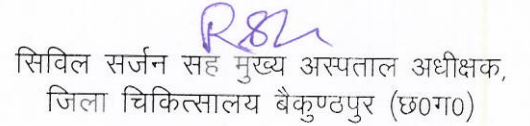 सिविल सर्जन सह मुख्य अस्पताल अधीक्षक,
जिला चिकित्सालय बैकुण्ठपुर (छ0ग0)